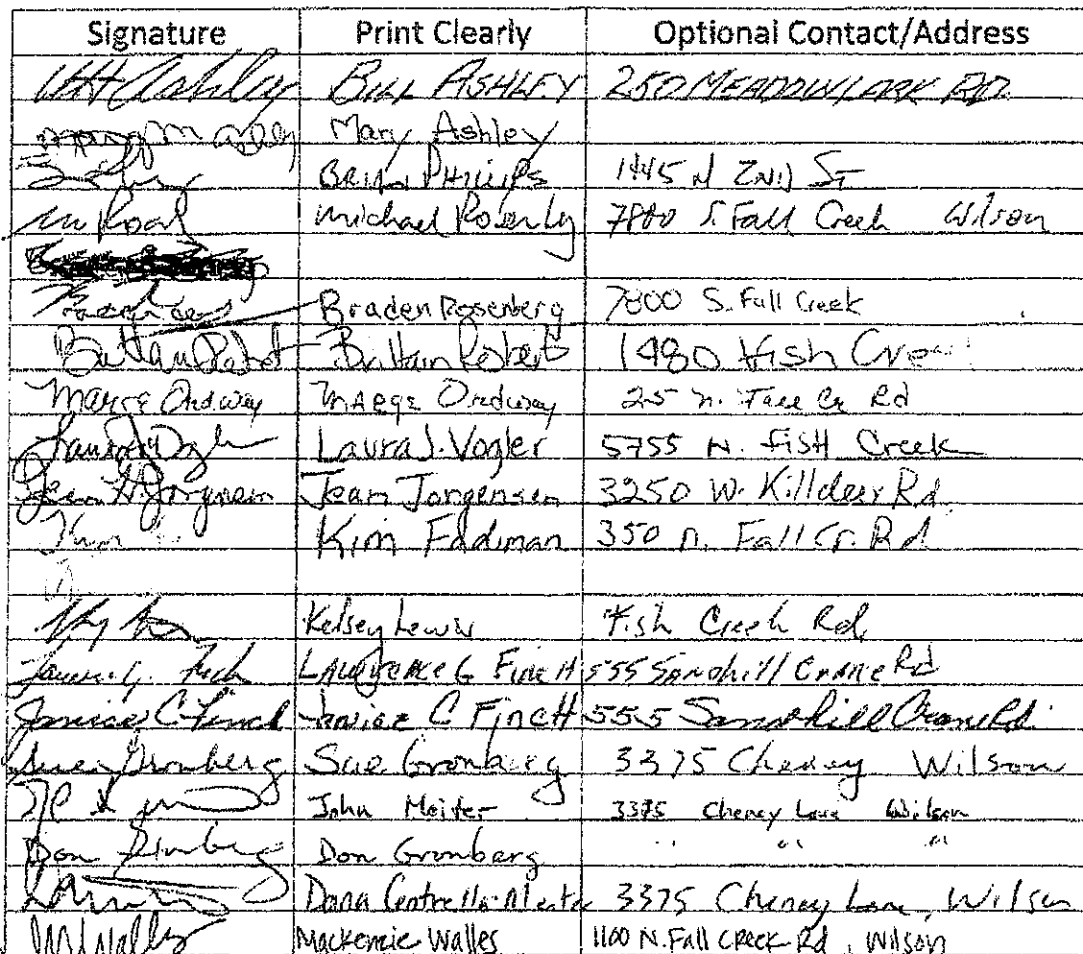 Signature Print Clearly Optional Contact/Address
Ashley BILL ASHLEY 250 MEADOWLARK RD.
Mary M Ashley Mary Ashley
BRIAN PHILLIPS 1445 N 2ND ST
Michael 7800 S. Fall Creek Wilson
Braden Rosenberg 7800 S. Fall Creek
Brittain Robert 1480 Fish Cree
Marge Ordway Marge Ordway 25 N. Fall Cr Rd
Laura J. Vogler Laura J. Vogler 5755 N. FISH Creek
Jean H. Jorgensen Jean Jorgensen 3250 W. Killdeer Rd
Kim Kim Fadiman 350 N. Fall Cr. Rd
Kelsey Lewis Fish Creek Rd.
LAWRENCE G FINCH 555 Sandhill Crane Rd
Janice C Finch Janice C FINCH 555 Sandhill Crane Rd.
Gronberg Sue Gronberg 3375 Cheney Wilson
John 3375 Cheney Lane Wilson
Don Gronberg Don Gronberg " " "
Dana 3375 Cheney Lane, Wilson
Mackenzie Walles 1100 N. Fall Creek Rd, Wilson